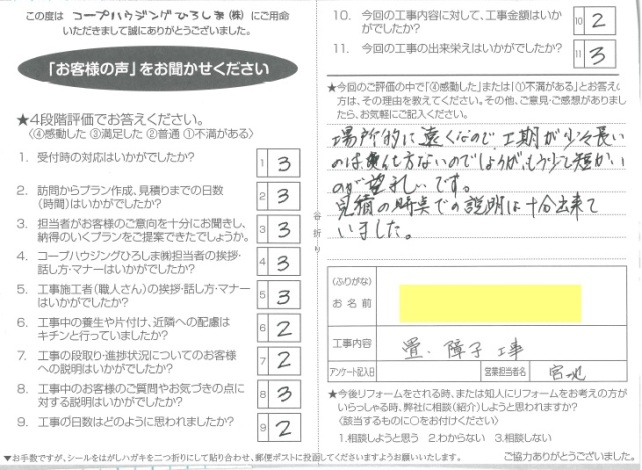 この度は コープハウジングひろしま(株) にご用命
いただきまして誠にありがとうございました。
「お客様の声」をお聞かせください
★4段階評価でお答えください。
〈④感動した ③満足した ②普通 ①不満がある〉
1. 受付時の対応はいかがでしたか? 1 3
2. 訪問からプラン作成、見積りまでの日数
(時間)はいかがでしたか? 2 3
3. 担当者がお客様のご意向を十分にお聞きし、
納得のいくプランをご提案できたでしょうか。 3 3
4. コープハウジングひろしま㈱担当者の挨拶・
話し方・マナーはいかがでしたか? 4 3
5. 工事施工者(職人さん)の挨拶・話し方・マナー
はいかがでしたか? 5 3
6. 工事中の養生や片付け、近隣への配慮は
キチンと行っていましたか? 6 2
7. 工事の段取り・進捗状況についてのお客様
への説明はいかがでしたか? 7 2
8. 工事中のお客様のご質問やお気づきの点に
対する説明はいかがでしたか? 8 3
9. 工事の日数はどのように思われましたか? 9 2
▼お手数ですが、シールをはがしハガキを二つ折りにして貼り合わせ、郵便ポストに投函してくださいますようお願いいたします。
谷折り
10. 今回の工事内容に対して、工事金額はいか
がでしたか? 10 2
11. 今回の工事の出来栄えはいかがでしたか? 11 3
★今回のご評価の中で「④感動した」または「①不満がある」とお答えの
方は、その理由を教えてください。その他、ご意見・ご感想がありました
ら、お気軽にご記入ください。
場所的に遠くなので、工期が少々長い
のは仕方ないのでしょうが、もう少し短かい
のが望ましいです。
見積の時点での説明は十分出来て
いました。
(ふりがな)
お名前
工事内容 畳、障子工事
アンケート記入日 営業担当者名 宮地
★今後リフォームをされる時、または知人にリフォームをお考えの方が
いらっしゃる時、弊社に相談(紹介)しようと思われますか?
〈該当するものに〇をお付けください〉
1.相談しようと思う 2.わからない 3.相談しない
ご協力ありがとうございました。